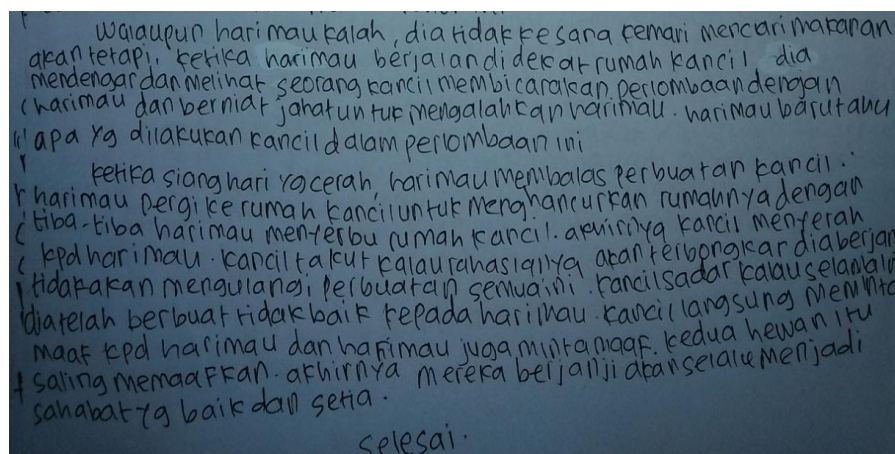 walaupun harimau kalah, dia tidak kesana kemari mencari makanan
akan tetapi, ketika harimau berjalan di dekat rumah kancil dia
mendengar dan melihat seorang kancil membicarakan perlombaan dengan
harimau dan berniat jahat untuk mengalahkan harimau. harimau baru tahu
apa yg dilakukan kancil dalam perlombaan ini
ketika siang hari yg cerah, harimau membalas perbuatan kancil.
harimau pergi ke rumah kancil untuk menghancurkan rumahnya dengan
tiba-tiba harimau menyerbu rumah kancil. akhirnya kancil menyerah
kpd harimau. kancil takut kalau rahasianya akan terbongkar dia berjan
tidak akan mengulangi perbuatan semua ini. kancil sadar kalau selama
dia telah berbuat tidak baik kepada harimau. kancil langsung meminta
maaf kpd harimau dan harimau juga minta maaf. kedua hewan itu
saling memaafkan. akhirnya mereka berjanji akan selalu menjadi
sahabat yg baik dan setia.
selesai.